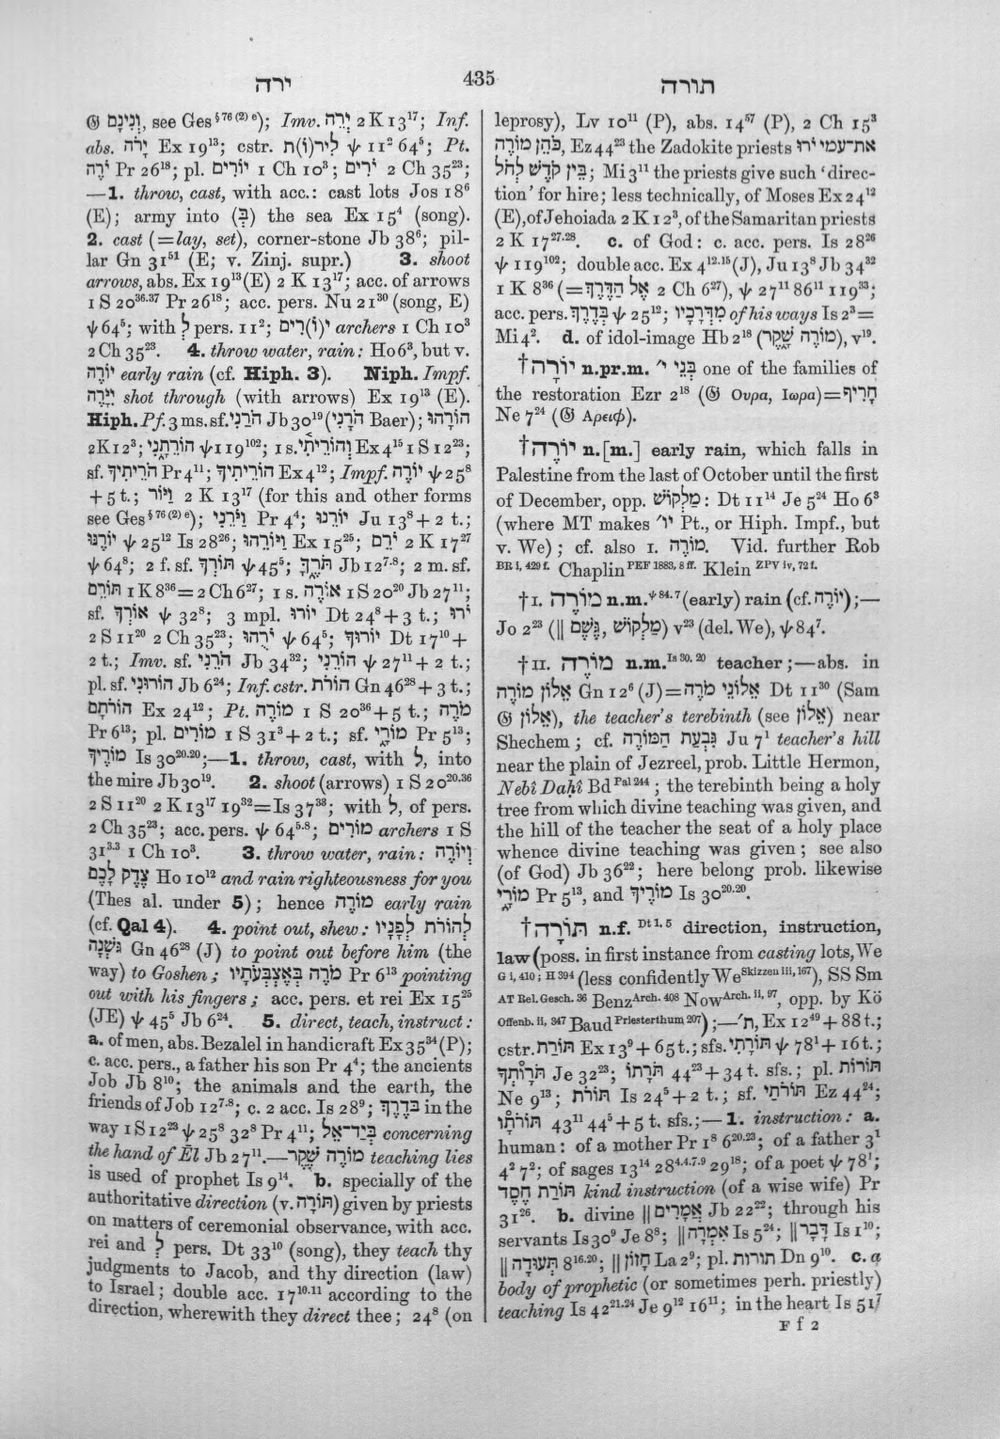 ירה
435
תורה
𝔊 וְנִינָם, see Ges § 76 (2) e); Imv. יְרֵה 2 K 13¹⁷; Inf.
abs. יָרֹה Ex 19¹³; cstr. לִיר(וֹ)ת ψ 11² 64⁵; Pt.
יֹרֶה Pr 26¹⁸; pl. יוֹרִים 1 Ch 10³; יֹרִים 2 Ch 35²³;
—1. throw, cast, with acc.: cast lots Jos 18⁶
(E); army into (בְּ) the sea Ex 15⁴ (song).
2. cast (=lay, set), corner-stone Jb 38⁶; pil-
lar Gn 31⁵¹ (E; v. Zinj. supr.) 3. shoot
arrows, abs. Ex 19¹³ (E) 2 K 13¹⁷; acc. of arrows
1 S 20³⁶·³⁷ Pr 26¹⁸; acc. pers. Nu 21³⁰ (song, E)
ψ 64⁵; with לְ pers. 11²; י(וֹ)רִים archers 1 Ch 10³
2 Ch 35²³. 4. throw water, rain: Ho 6³, but v.
יוֹרֶה early rain (cf. Hiph. 3). Niph. Impf.
יִיָּרֶה shot through (with arrows) Ex 19¹³ (E).
Hiph. Pf. 3 ms. sf. הֹרָנִי Jb 30¹⁹ (הֹרָנִי Baer); הוֹרָהוּ
2K 12³; הוֹרֵתָנִי ψ 119¹⁰²; 1 s. וְהוֹרֵיתִי Ex 4¹⁵ 1 S 12²³;
sf. הֹרֵיתִיךָ Pr 4¹¹; הוֹרֵיתִיךָ Ex 4¹²; Impf. יוֹרֶה ψ 25⁸
+ 5 t.; וַיּוֹר 2 K 13¹⁷ (for this and other forms
see Ges § 76 (2) e); וַיֹּרֵנִי Pr 4⁴; יוֹרֵנוּ Ju 13⁸ + 2 t.;
יוֹרֶנּוּ ψ 25¹² Is 28²⁶; וַיּוֹרֵהוּ Ex 15²⁵; יֹרֵם 2 K 17²⁷
ψ 64⁸; 2 f. sf. תּוֹרְךָ ψ 45⁵; תֹרֶךָּ Jb 12⁷·⁸; 2 m. sf.
תּוֹרֵם 1 K 8³⁶ = 2 Ch 6²⁷; 1 s. אוֹרֶה 1 S 20²⁰ Jb 27¹¹;
sf. אוֹרְךָ ψ 32⁸; 3 mpl. יוֹרוּ Dt 24⁸ + 3 t.; יֹרוּ
2 S 11²⁰ 2 Ch 35²³; יֹרֻהוּ ψ 64⁵; יוֹרוּךָ Dt 17¹⁰ +
2 t.; Imv. sf. הֹרֵנִי Jb 34³²; הוֹרֵנִי ψ 27¹¹ + 2 t.;
pl. sf. הוֹרוּנִי Jb 6²⁴; Inf. cstr. הוֹרֹת Gn 46²⁸ + 3 t.;
הוֹרֹתָם Ex 24¹²; Pt. מוֹרֶה 1 S 20³⁶ + 5 t.; מֹרֶה
Pr 6¹³; pl. מוֹרִים 1 S 31³ + 2 t.; sf. מוֹרָי Pr 5¹³;
מוֹרֶיךָ Is 30²⁰·²⁰;—1. throw, cast, with לְ, into
the mire Jb 30¹⁹. 2. shoot (arrows) 1 S 20²⁰·³⁶
2 S 11²⁰ 2 K 13¹⁷ 19³² = Is 37³³; with לְ, of pers.
2 Ch 35²³; acc. pers. ψ 64⁵·⁸; מוֹרִים archers 1 S
31³·³ 1 Ch 10³. 3. throw water, rain: וְיוֹרֶה
צֶדֶק לָכֶם Ho 10¹² and rain righteousness for you
(Thes al. under 5); hence מוֹרֶה early rain
(cf. Qal 4). 4. point out, shew: לְהוֹרֹת לְפָנָיו
גּשְׁנָה Gn 46²⁸ (J) to point out before him (the
way) to Goshen; מֹרֶה בְּאֶצְבְּעֹתָיו Pr 6¹³ pointing
out with his fingers; acc. pers. et rei Ex 15²⁵
(JE) ψ 45⁵ Jb 6²⁴. 5. direct, teach, instruct:
a. of men, abs. Bezalel in handicraft Ex 35³⁴ (P);
c. acc. pers., a father his son Pr 4⁴; the ancients
Job Jb 8¹⁰; the animals and the earth, the
friends of Job 12⁷·⁸; c. 2 acc. Is 28⁹; בְּדֶרֶךְ in the
way 1 S 12²³ ψ 25⁸ 32⁸ Pr 4¹¹; בְּיַד־אֵל concerning
the hand of Ēl Jb 27¹¹.—מוֹרֶה שֶׁקֶר teaching lies
is used of prophet Is 9¹⁴. b. specially of the
authoritative direction (v. תּוֹרָה) given by priests
on matters of ceremonial observance, with acc.
rei and לְ pers. Dt 33¹⁰ (song), they teach thy
judgments to Jacob, and thy direction (law)
to Israel; double acc. 17¹⁰·¹¹ according to the
direction, wherewith they direct thee; 24⁸ (on
leprosy), Lv 10¹¹ (P), abs. 14⁵⁷ (P), 2 Ch 15³
כֹּהֵן מוֹרֶה, Ez 44²³ the Zadokite priests את־עמי יֹרוּ
בֵּין קֹדֶשׁ לְחֹל; Mi 3¹¹ the priests give such 'direc-
tion' for hire; less technically, of Moses Ex 24¹²
(E), of Jehoiada 2 K 12³, of the Samaritan priests
2 K 17²⁷·²⁸. c. of God: c. acc. pers. Is 28²⁶
ψ 119¹⁰²; double acc. Ex 4¹²·¹⁵ (J), Ju 13⁸ Jb 34³²
1 K 8³⁶ (=אֶל הַדֶּרֶךְ 2 Ch 6²⁷), ψ 27¹¹ 86¹¹ 119³³;
acc. pers. בְּדֶרֶךְ ψ 25¹²; מִדְּרָכָיו of his ways Is 2³ =
Mi 4². d. of idol-image Hb 2¹⁸ (מוֹרֶה שָׁקֶר), v¹⁹.
†יוֹרָה n.pr.m. בְּנֵי י׳ one of the families of
the restoration Ezr 2¹⁸ (𝔊 Ουρα, Ιωρα) = חָרִיף
Ne 7²⁴ (𝔊 Αρειφ).
†יוֹרֶה n.[m.] early rain, which falls in
Palestine from the last of October until the first
of December, opp. מַלְקוֹשׁ: Dt 11¹⁴ Je 5²⁴ Ho 6³
(where MT makes יו׳ Pt., or Hiph. Impf., but
v. We); cf. also I. מוֹרֶה. Vid. further Rob
BR i, 429 f. Chaplin PEF 1883, 8 ff. Klein ZPV iv, 72 f.
†I. מוֹרֶה n.m. ψ 84, 7 (early) rain (cf. יוֹרֶה);—
Jo 2²³ (‖ גֶּשֶׁם, מַלְקוֹשׁ) v²³ (del. We), ψ 84⁷.
†II. מוֹרֶה n.m. Is 30, 20 teacher;—abs. in
אֵלוֹן מוֹרֶה Gn 12⁶ (J) = אֵלוֹנֵי מֹרֶה Dt 11³⁰ (Sam
𝔊 אֵלוֹן), the teacher's terebinth (see אֵלוֹן) near
Shechem; cf. גִּבְעַת הַמּוֹרֶה Ju 7¹ teacher's hill
near the plain of Jezreel, prob. Little Hermon,
Nebî Daḥî Bd Pal 244; the terebinth being a holy
tree from which divine teaching was given, and
the hill of the teacher the seat of a holy place
whence divine teaching was given; see also
(of God) Jb 36²²; here belong prob. likewise
מוֹרָי Pr 5¹³, and מוֹרֶיךָ Is 30²⁰·²⁰.
†תּוֹרָה n.f. Dt 1, 5 direction, instruction,
law (poss. in first instance from casting lots, We
G i, 410; H 394 (less confidently We Skizzen iii, 167), SS Sm
AT Rel. Gesch. 36 Benz Arch. 408 Now Arch. ii, 97, opp. by Kö
Offenb. ii, 347 Baud Priesterthum 207);—ת׳, Ex 12⁴⁹ + 88 t.;
cstr. תּוֹרַת Ex 13⁹ + 65 t.; sfs. תּוֹרָתִי ψ 78¹ + 16 t.;
תֹּרָתְךָ Je 32²³; תֹּרָתוֹ 44²³ + 34 t. sfs.; pl. תּוֹרוֹת
Ne 9¹³; תּוֹרֹת Is 24⁵ + 2 t.; sf. תּוֹרֹתַי Ez 44²⁴;
תּוֹרֹתָו 43¹¹ 44⁵ + 5 t. sfs.;—1. instruction: a.
human: of a mother Pr 1⁸ 6²⁰·²³; of a father 3¹
4² 7²; of sages 13¹⁴ 28⁴·⁴·⁷·⁹ 29¹⁸; of a poet ψ 78¹;
תּוֹרַת חֶסֶד kind instruction (of a wise wife) Pr
31²⁶. b. divine ‖ אֲמָרִים Jb 22²²; through his
servants Is 30⁹ Je 8⁸; ‖ אִמְרָה Is 5²⁴; ‖ דָּבָר Is 1¹⁰;
‖ תְּעוּדָה 8¹⁶·²⁰; ‖ חָזוֹן La 2⁹; pl. תורות Dn 9¹⁰. c. a
body of prophetic (or sometimes perh. priestly)
teaching Is 42²¹·²⁴ Je 9¹² 16¹¹; in the heart Is 51⁷
F f 2